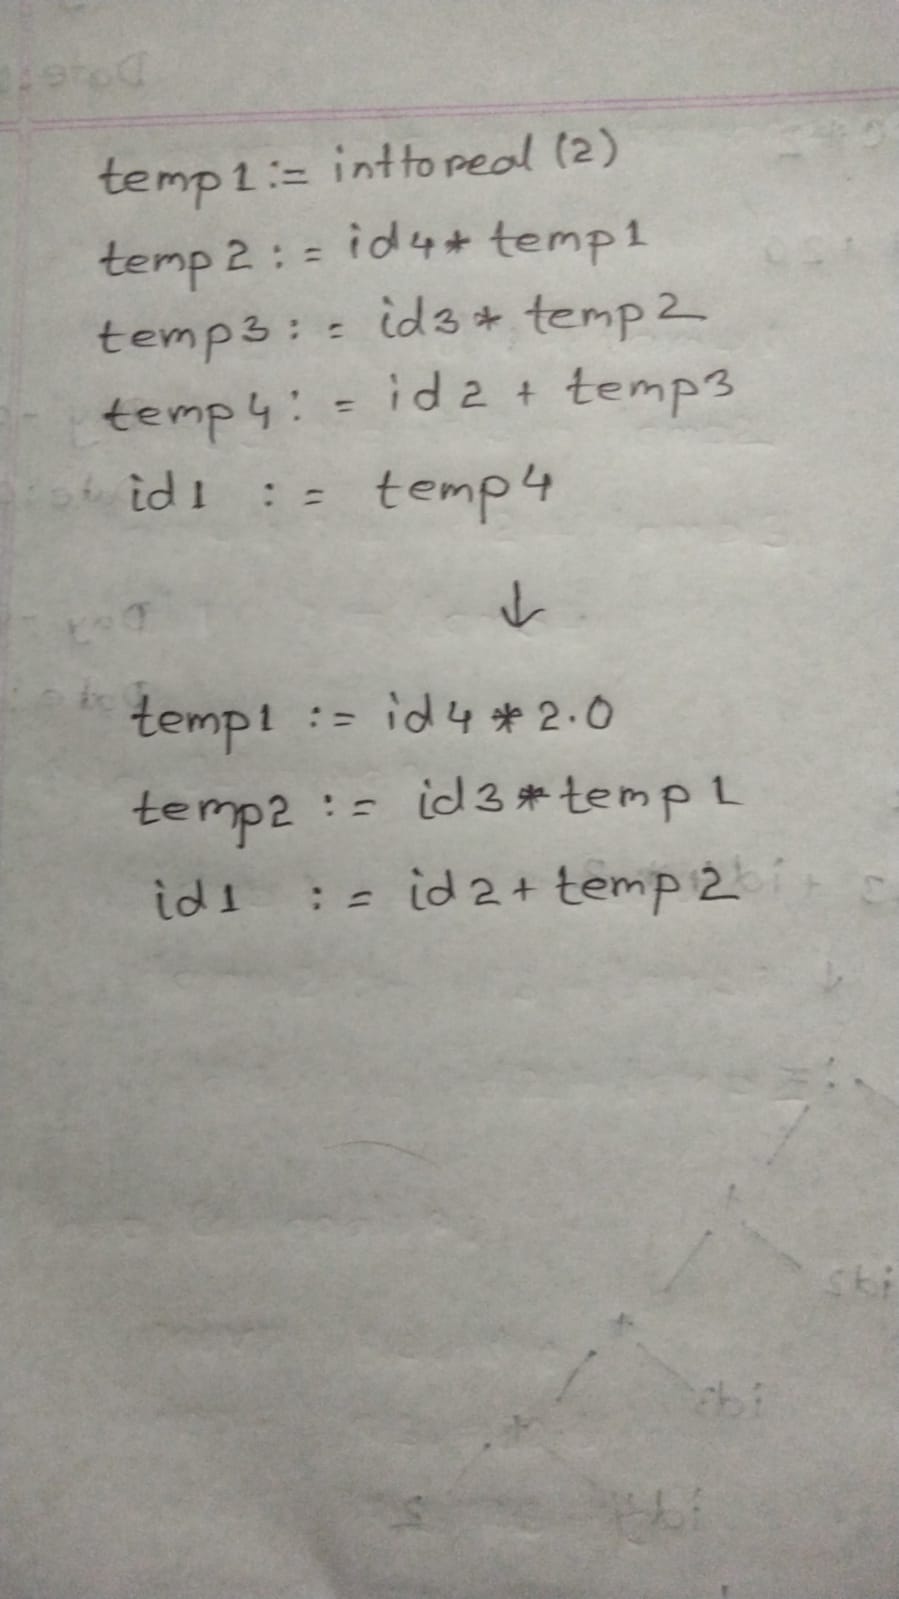 temp1:= inttoreal (2)
temp2 := id4* temp1
temp3 := id3 * temp2
temp4 := id2 + temp3
id1 := temp4
↓
temp1 := id4 * 2.0
temp2 := id3 * temp1
id1 := id2 + temp2